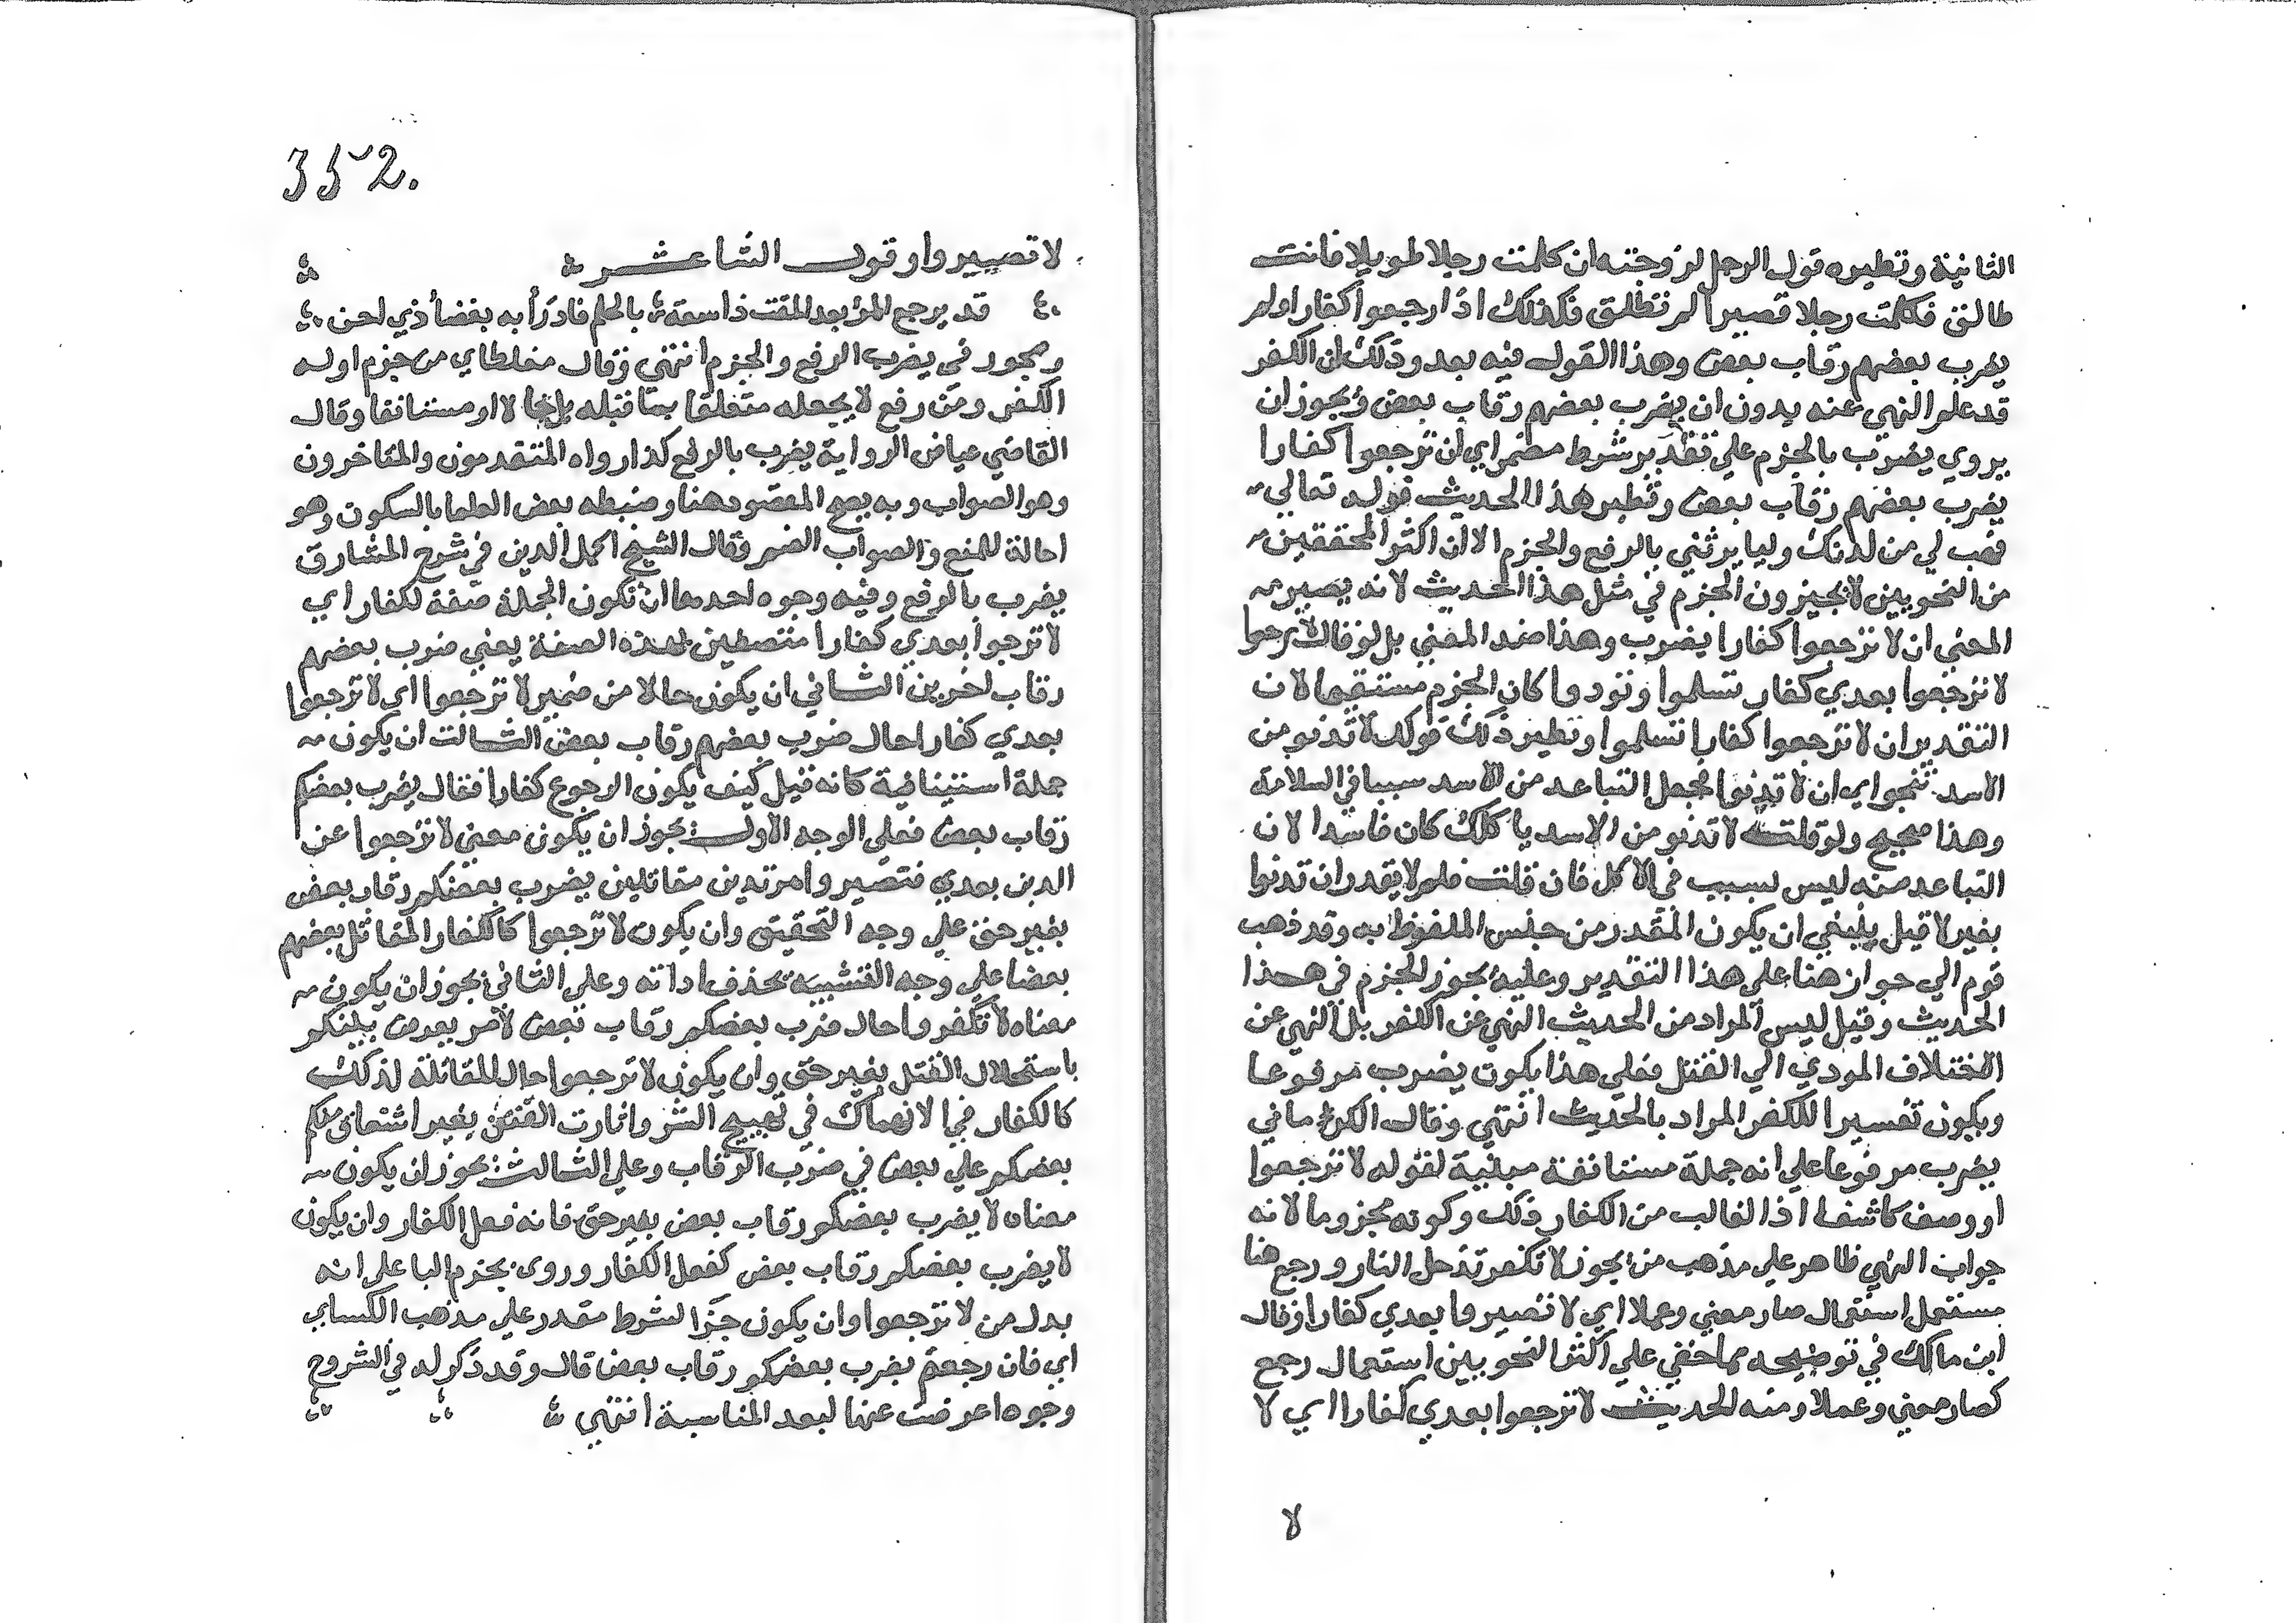 الثانية ونظيره قول الرجل لزوجته ان كلمت رجلا طويلا فانت
طالق فكلمت رجلا قصيرا لم تطلق فكذلك اذا رجعوا كفارا ولم
يضرب بعضهم رقاب بعض وهذا القول فيه بعد وذلك ان الكفر
قد علم النهي عنه بدون ان يضرب بعضهم رقاب بعض ويجوز ان
يروي يضرب بالجزم علي تقدير شرط مضمر اي ان ترجعوا كفارا
يضرب بعضهم رقاب بعض ونظير هذا الحديث قوله تعالي
فهب لي من لدنك وليا يرثني بالرفع والجزم الا ان اكثر المحققين
من النحويين لا يجيزون الجزم في مثل هذا الحديث لانه يصير
المعني ان لا ترجعوا كفارا يضرب وهذا ضد المعني بل لو قال لا ترجعوا
لا ترجعوا بعدي كفار تسلموا وتودوا كان الجزم مستقيما لان
التقدير ان لا ترجعوا كفارا تسلموا ونظير ذلك قولك لا تدنو من
الاسد تنجو اي ان لا تدنوا فجعل التباعد من الاسد سببا في السلامة
وهذا صحيح ولو قلت لا تدنو من الاسد ياكلك كان فاسدا لان
التباعد منه ليس بسبب في الاكل فان قلت فلم لا يقدر ان تدنوا
بغير لا قيل ينبغي ان يكون المقدر من جنس الملفوظ به وقد ذهب
قوم الي جوازه هنا علي هذا التقدير وعليه يجوز الجزم في هذا
الحديث وقيل ليس المراد من الحديث النهي عن الكفر بل النهي عن
الاختلاف المودي الي القتل فعلي هذا يكون يضرب مرفوعا
ويكون تفسيرا للكفر المراد بالحديث انتهي وقال الكرماني
يضرب مرفوعا علي انه جملة مستانفة مبنية لقوله لا ترجعوا
او وصف كاشف اذ الغالب من الكفار ذلك وكونه مجزوما لانه
جواب النهي ظاهر علي مذهب من يجوز لا تكفر تدخل النار ورجع هنا
مستعمل استعمال صار معني وعملا اي لا تصيروا بعدي كفارا وقال
ابن مالك في توضيحه مما خفي علي اكثر النحويين استعمال رجع
كصار معني وعملا ومنه الحديث لا ترجعوا بعدي كفارا اي لا
لا
352.
لا تصيروا وقول الشاعر
قد يرجع المرء بعد المقت ذا سمعة بالحلم فادرأ به بغضا ذي احن
ويجوز في يضرب الرفع والجزم انتهي وقال مغلطاي من جزم اوله
الكفر ومن رفع لا يجعله متعلقا بما قبله بل حالا او مستانفا وقال
القاضي عياض الرواية يضرب بالرفع كذا رواه المتقدمون والمتاخرون
وهو الصواب وبه يصح المقصود هنا وضبطه بعض العلما بالسكون وهو
احالة للمنع والصواب الضم وقال الشيخ اكمل الدين في شرح المشارق
يضرب بالرفع وفيه وجوه احدها ان تكون الجملة صفة لكفار اي
لا ترجوا بعدي كفارا متصفين بهذه الصفة يعني ضرب بعضهم
رقاب اخرين الثاني ان يكون حالا من ضمير لا ترجعوا اي لا ترجعوا
بعدي كفارا حال ضرب بعضهم رقاب بعض الثالث ان يكون
جملة استينافية كانه قيل كيف يكون الرجوع كفارا فقال يضرب بعضكم
رقاب بعض فعلي الوجه الاول يجوز ان يكون معني لا ترجعوا عن
الدين بعدي فتصيروا مرتدين مقاتلين يضرب بعضكم رقاب بعض
بغير حق علي وجه التحقيق وان يكون لا ترجعوا كالكفار المقاتل بعضهم
بعضا علي وجه التشبيه بحذف اداته وعلي الثاني يجوز ان يكون
معناه لا تكفروا حال ضرب بعضكم رقاب بعض لامر يعرض بينكم
باستحلال القتل بغير حق وان يكون لا ترجعوا حال المقاتلة لذلك
كالكفار في الانهماك في تهييج الشر واثارت الفتن بغير اشفاق منكم
بعضكم علي بعض في ضرب الرقاب وعلي الثالث يجوز ان يكون
معناه لا يضرب بعضكم رقاب بعض بغير حق فانه فعل الكفار وان يكون
لا يضرب بعضكم رقاب بعض كفعل الكفار وروي بجزم البا علي انه
بدل من لا ترجعوا وان يكون جزا لشرط مقدر علي مذهب الكساي
اي فان رجعتم يضرب بعضكم رقاب بعض قال وقد ذكر له في الشروح
وجوه اعرضت عنها لبعد المناسبة انتهي